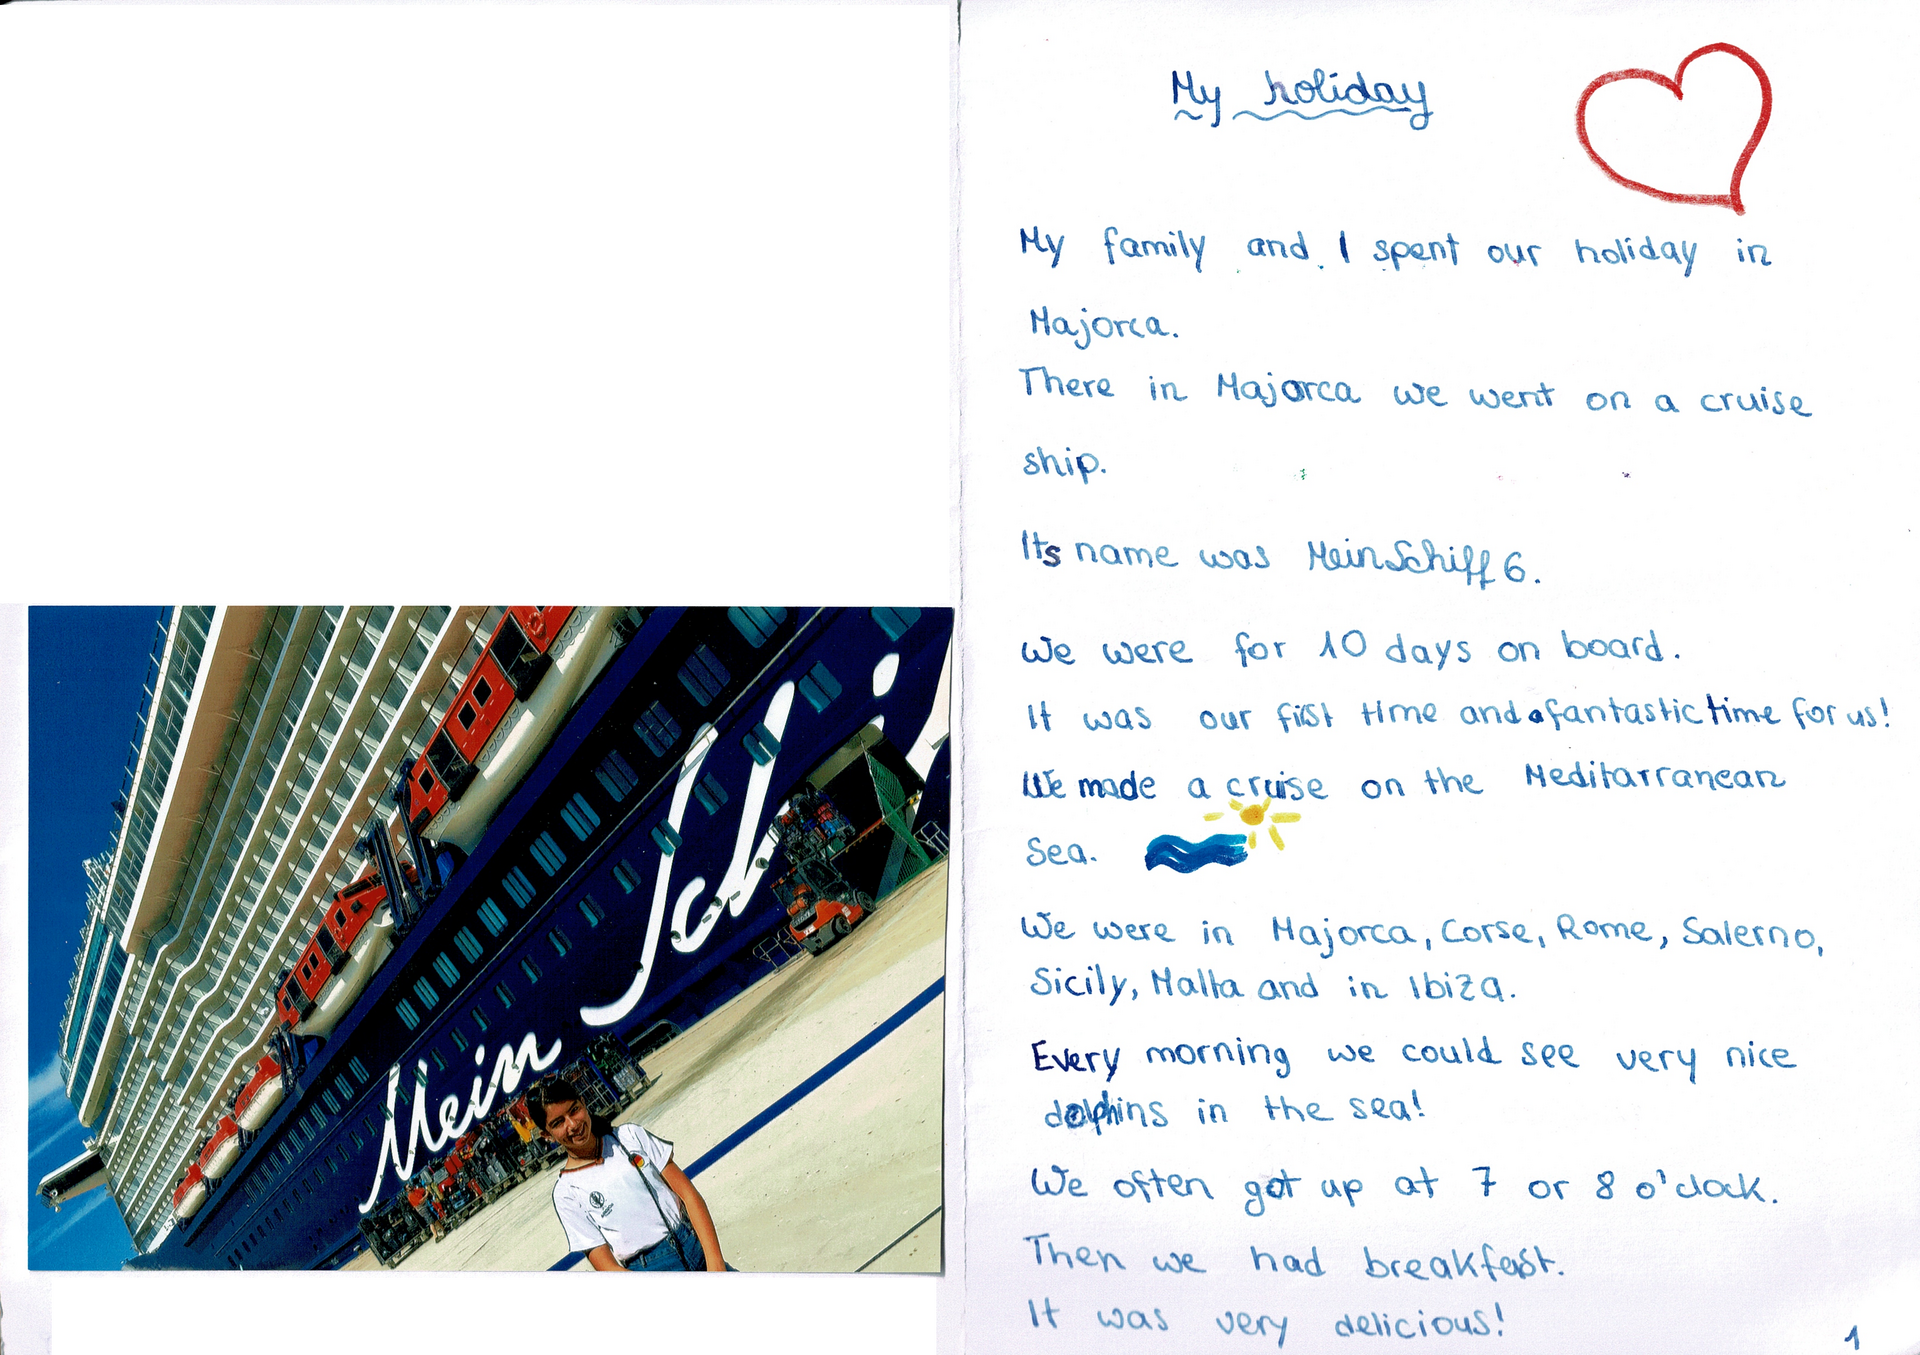 Mein Schi
My holiday
My family and I spent our holiday in
Majorca.
There in Majorca we went on a cruise
ship.
Its name was MeinSchiff 6.
We were for 10 days on board.
It was our first time and a fantastic time for us!
We made a cruise on the Meditarranean
Sea.
We were in Majorca, Corse, Rome, Salerno,
Sicily, Malta and in Ibiza.
Every morning we could see very nice
dolphins in the sea!
We often got up at 7 or 8 o'clock.
Then we had breakfast.
It was very delicious!
1